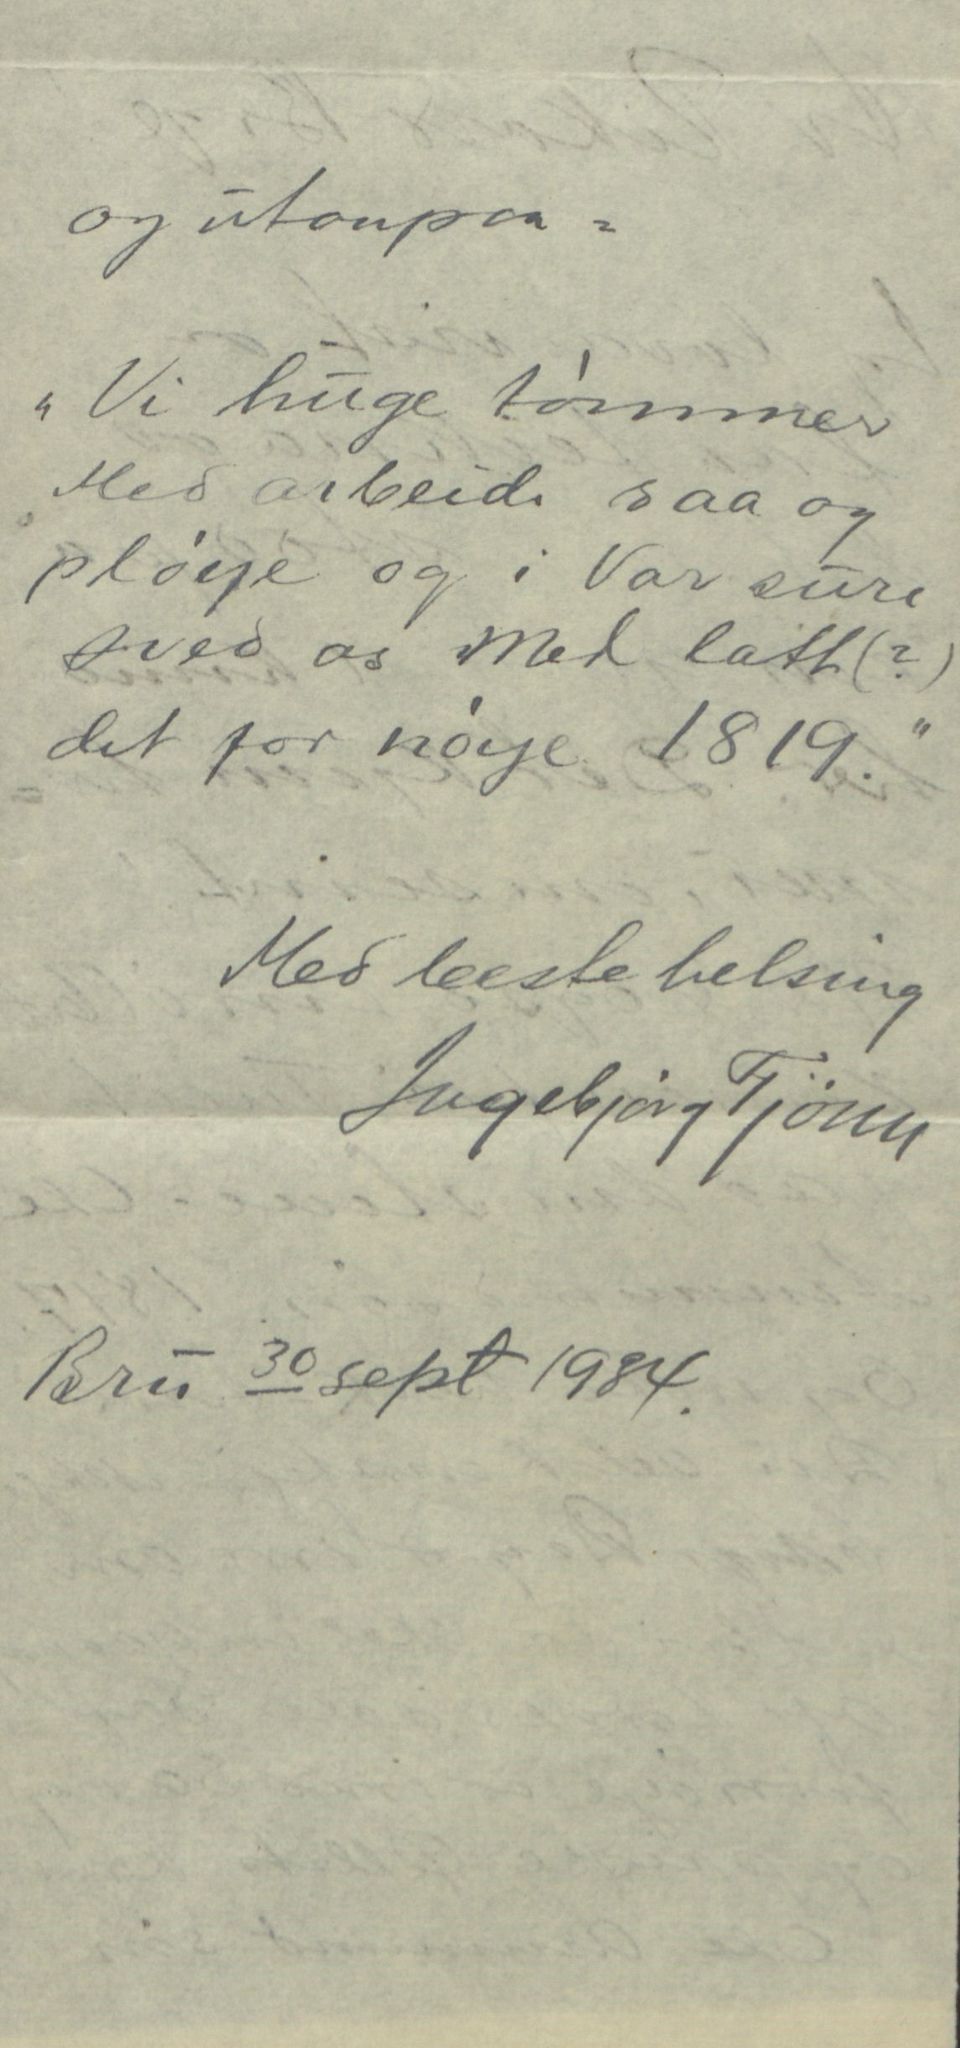 og utanpaa =
"Vi huge tømmer
Med arbeide saa og
pløye og i Vor sure
sved os Med latt (?)
det for nøye 1819."
Med beste helsing
Ingebjørg Fjönn
Brū 30 sept 1984.